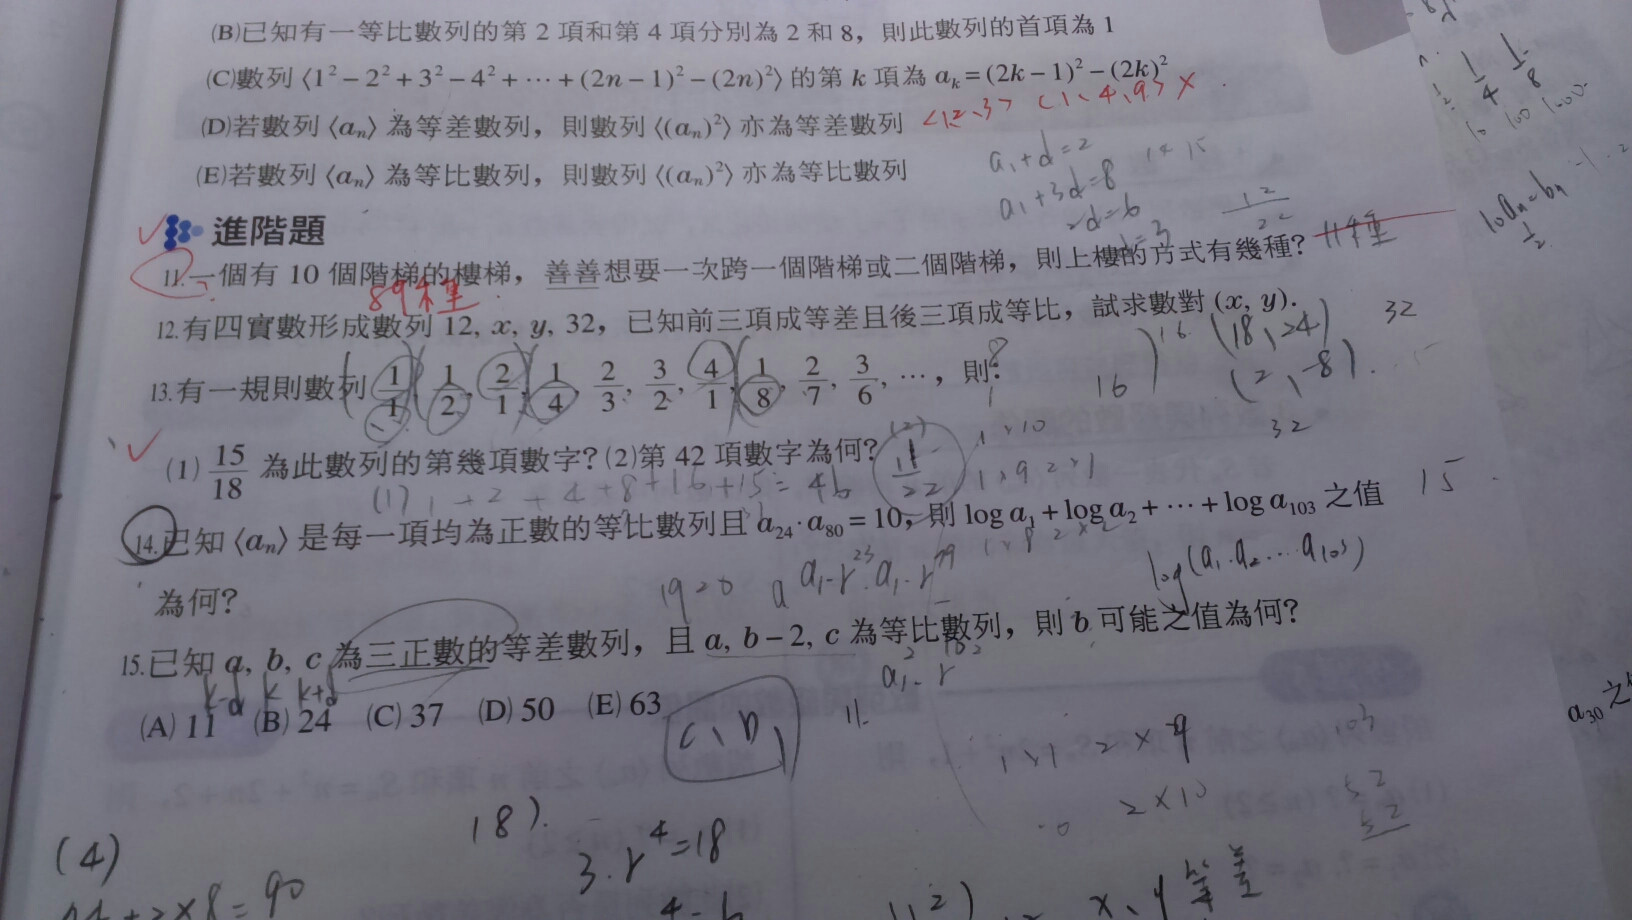 (B)已知有一等比數列的第 2 項和第 4 項分別為 2 和 8，則此數列的首項為 1
(C)數列 ⟨1² − 2² + 3² − 4² + ⋯ + (2n − 1)² − (2n)²⟩ 的第 k 項為 aₖ = (2k − 1)² − (2k)²
(D)若數列 ⟨aₙ⟩ 為等差數列，則數列 ⟨(aₙ)²⟩ 亦為等差數列 <1,2,3> <1、4、9> ×
(E)若數列 ⟨aₙ⟩ 為等比數列，則數列 ⟨(aₙ)²⟩ 亦為等比數列
a₁+d=2
a₁+3d=8
2d=6
進階題
11.一個有 10 個階梯的樓梯，善善想要一次跨一個階梯或二個階梯，則上樓的方式有幾種? 11種
89種
12.有四實數形成數列 12, x, y, 32，已知前三項成等差且後三項成等比，試求數對 (x, y).
(18,24)
(2,-8)
32
16
13.有一規則數列 1/1, 1/2, 2/1, 1/4, 2/3, 3/2, 4/1, 1/8, 2/7, 3/6, ⋯，則:
(1) 15/18 為此數列的第幾項數字? (2)第 42 項數字為何? 11/22
(1) 1+2+4+8+16+15=46
14.已知 ⟨aₙ⟩ 是每一項均為正數的等比數列且 a₂₄ · a₈₀ = 10，則 log a₁ + log a₂ + ⋯ + log a₁₀₃ 之值
為何?
log(a₁·a₂…a₁₀₃)
15.已知 a, b, c 為三正數的等差數列，且 a, b − 2, c 為等比數列，則 b 可能之值為何?
k-d k k+d
(A) 11 (B) 24 (C) 37 (D) 50 (E) 63
C、D
11.
2×10
103
52
52
18).
3·r⁴=18
(4)
x、y 等差
a₃₀ 之